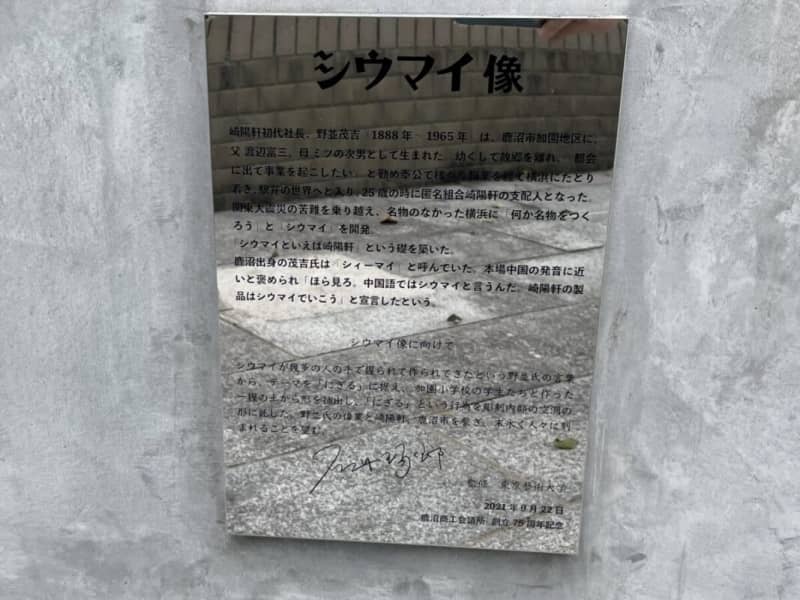 シウマイ像
崎陽軒初代社長、野並茂吉「1888年〜1965年」は、鹿沼市加園地区に、
父 渡辺富三、母ミツの次男として生まれた。幼くして故郷を離れ、「都会
に出て事業を起こしたい」と勤め奉公で様々な職業を経て横浜にたどり
着き、駅弁の世界へと入り、25歳の時に匿名組合崎陽軒の支配人となった。
関東大震災の苦難を乗り越え、名物のなかった横浜に「何か名物をつく
ろう」と「シウマイ」を開発。
「シウマイといえば崎陽軒」という礎を築いた。
鹿沼出身の茂吉氏は「シィーマイ」と呼んでいた。本場中国の発音に近
いと褒められ「ほら見ろ。中国語ではシウマイと言うんだ。崎陽軒の製
品はシウマイでいこう」と宣言したという。
シウマイ像に向けて
シウマイが幾多の人の手で握られて作られてきたという野並氏の言葉
から、テーマを「にぎる」に捉え、加園小学校の学生たちと作った
一握の土から形を抽出し、「にぎる」という行為を彫刻内部の空洞の
形に託した。野並氏の偉業と崎陽軒、鹿沼市を繋ぎ、末永く人々に刻
まれることを望む。
監修 東京藝術大学
2021年 月22日
鹿沼商工会議所 創立75周年記念